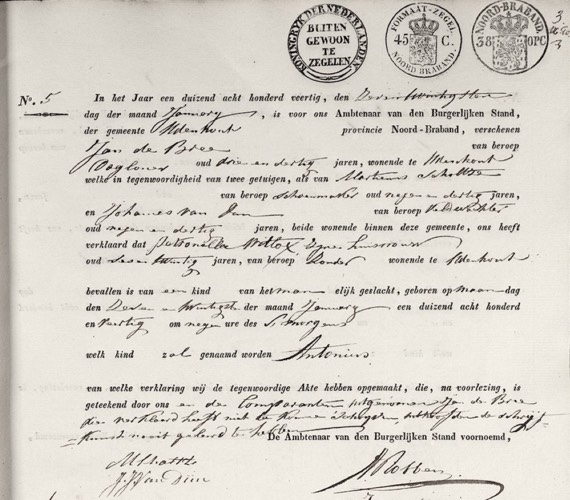 KONINGRYK DER NEDERLANDEN
BUITEN
GEWOON
TE
ZEGELEN
FORMAAT-ZEGEL.
45 C.
NOORD BRABAND.
NOORD-BRABAND.
38 OPC
3
No. 5
In het Jaar een duizend acht honderd veertig, den Zeven en twintigsten
dag der maand January, is voor ons Ambtenaar van den Burgerlijken Stand,
der gemeente Udenhout provincie Noord-Braband, verschenen
Jan de Bree van beroep
Daglooner oud drie en dertig jaren, wonende te Udenhout
welke in tegenwoordigheid van twee getuigen, als van Martinus Scholtze
van beroep Schoenmaker oud negen en dertig jaren,
en Johannes van Dun van beroep Veldwachter
oud negen en dertig jaren, beide wonende binnen deze gemeente, ons heeft
verklaard dat Petronella Witlox zyne huisvrouw
oud jaren, van beroep Zonder wonende te Udenhout
bevallen is van een kind van het man elijk geslacht, geboren op maan dag
den Zeven en twintigste der maand January een duizend acht honderd
en veertig om negen ure des Smorgens
welk kind zal genaamd worden Antonius.
van welke verklaring wij de tegenwoordige Akte hebben opgemaakt, die, na voorlezing, is
geteekend door ons en de Comparanten uitgenomen Jan de Bree
die verklaard heeft niet te kunnen schryven, uithoofde de schryf-
kunst nooit geleerd te hebben
De Ambtenaar van den Burgerlijken Stand voornoemd,
J. Van Dun